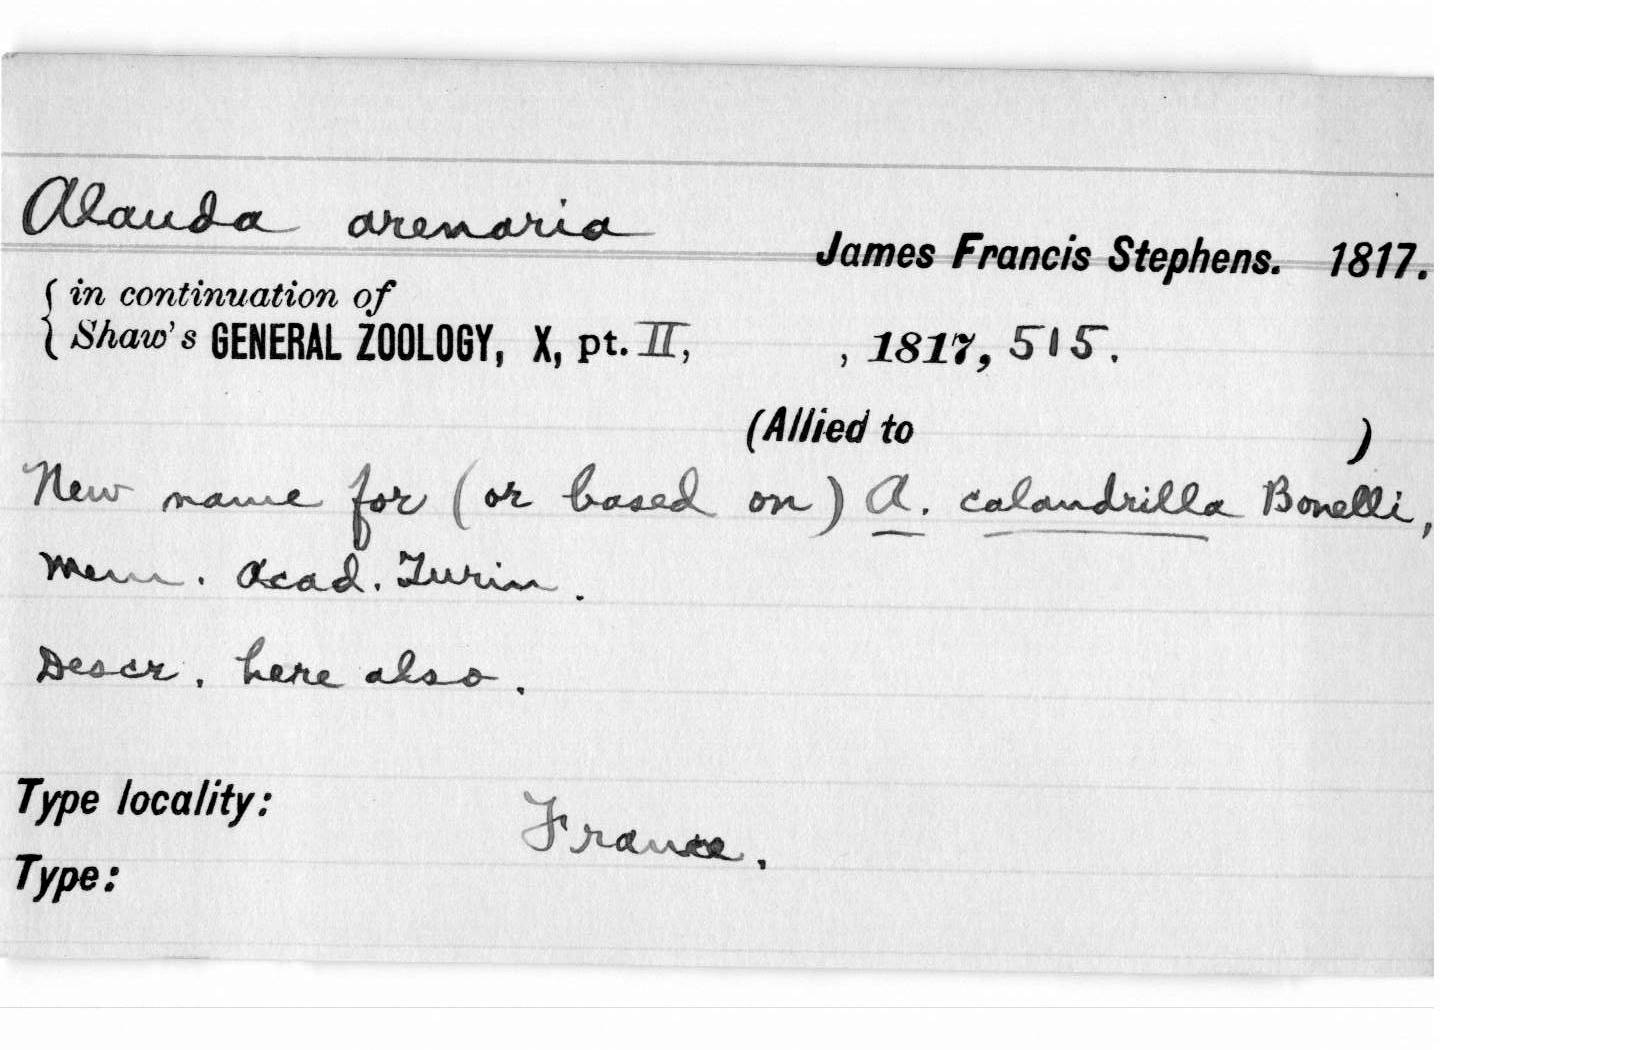 Alauda arenaria
James Francis Stephens. 1817.
in continuation of
Shaw's GENERAL ZOOLOGY, X, pt. II, , 1817, 515.
(Allied to )
New name for (or based on) A. calandrilla Bonelli,
Mem. Acad. Turin.
Descr. here also.
Type locality: France.
Type: